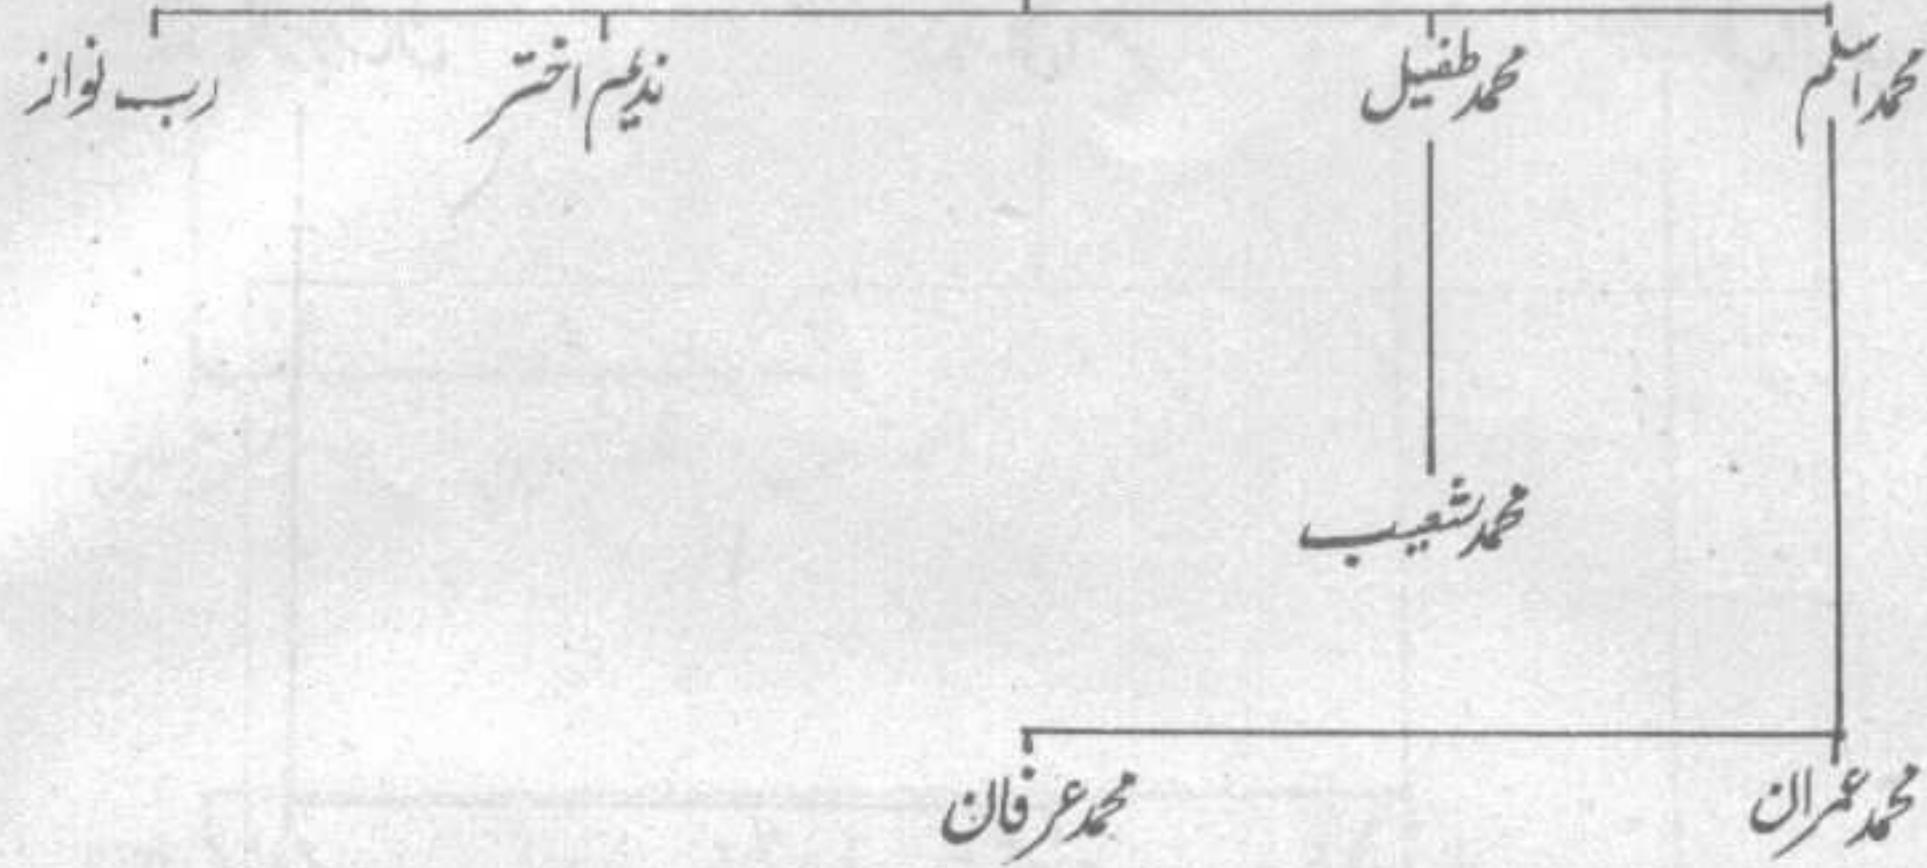 محمد اسلم محمد طفیل ندیم اختر رب نواز
محمد شعیب
محمد عمران محمد عرفان